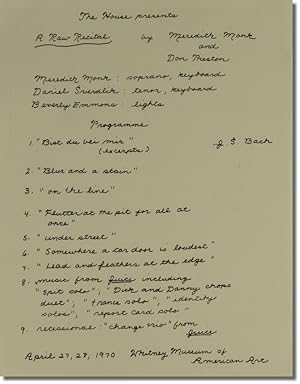 The House presents
A Raw Recital by Meredith Monk
and
Don Preston
Meredith Monk: soprano, keyboard
Daniel Sverdlik: tenor, keyboard
Beverly Emmons: lights
Programme
1. "Bist du bei mir" J. S. Bach
(excerpts)
2. "Blur and a stain"
3. "on the line"
4. "Flutter at the pit for all at
once"
5. "under street"
6. "Somewhere a car door is loudest"
7. "Lead and feathers at the edge"
8. music from Juice including
"spit solo"; "Dick and Danny chops
duet"; "trance solo"; "identity
solos"; "report card solo"
9. recessional: "change trio" from
Juice
April 27, 28, 1970 Whitney Museum of
American Art